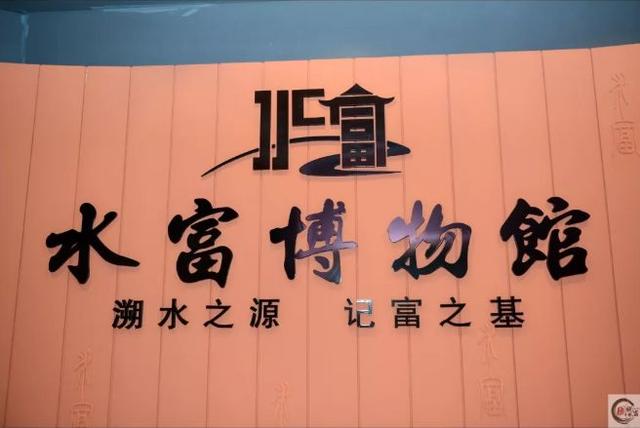 水富
水富博物馆
溯水之源 记富之基